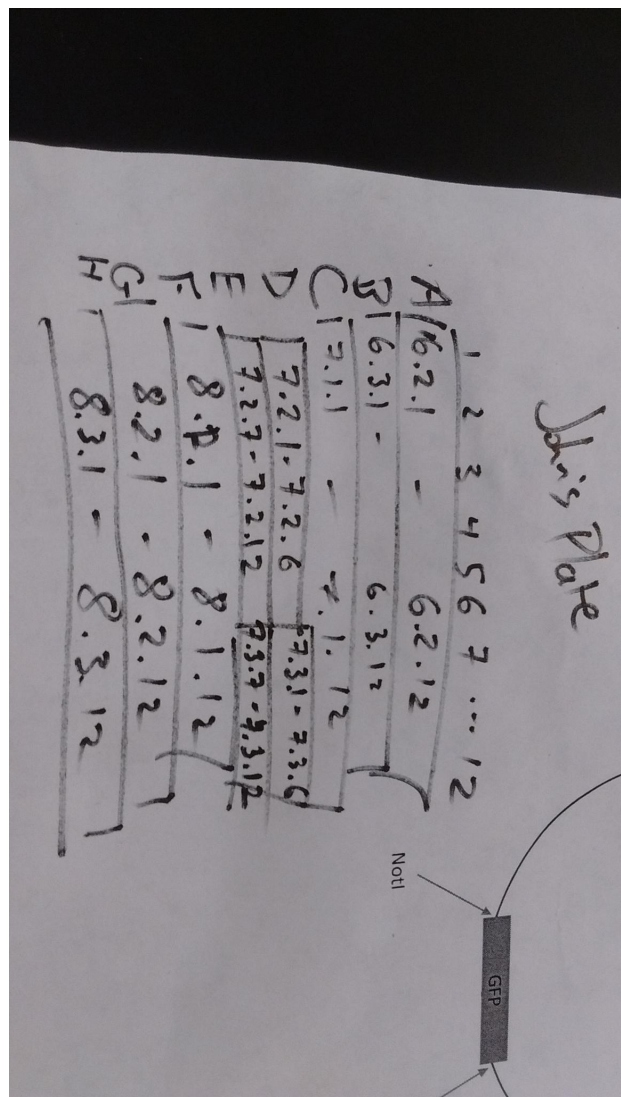 John's Plate
1 2 3 4 5 6 7 ... 12
A 6.2.1 - 6.2.12
B 6.3.1 - 6.3.12
C 7.1.1 - 7.1.12
D 7.2.1 - 7.2.6 7.3.1 - 7.3.6
E 7.2.7 - 7.2.12 7.3.7 - 7.3.12
F 8.1.1 - 8.1.12
G 8.2.1 - 8.2.12
H 8.3.1 - 8.3.12
NotI
GFP